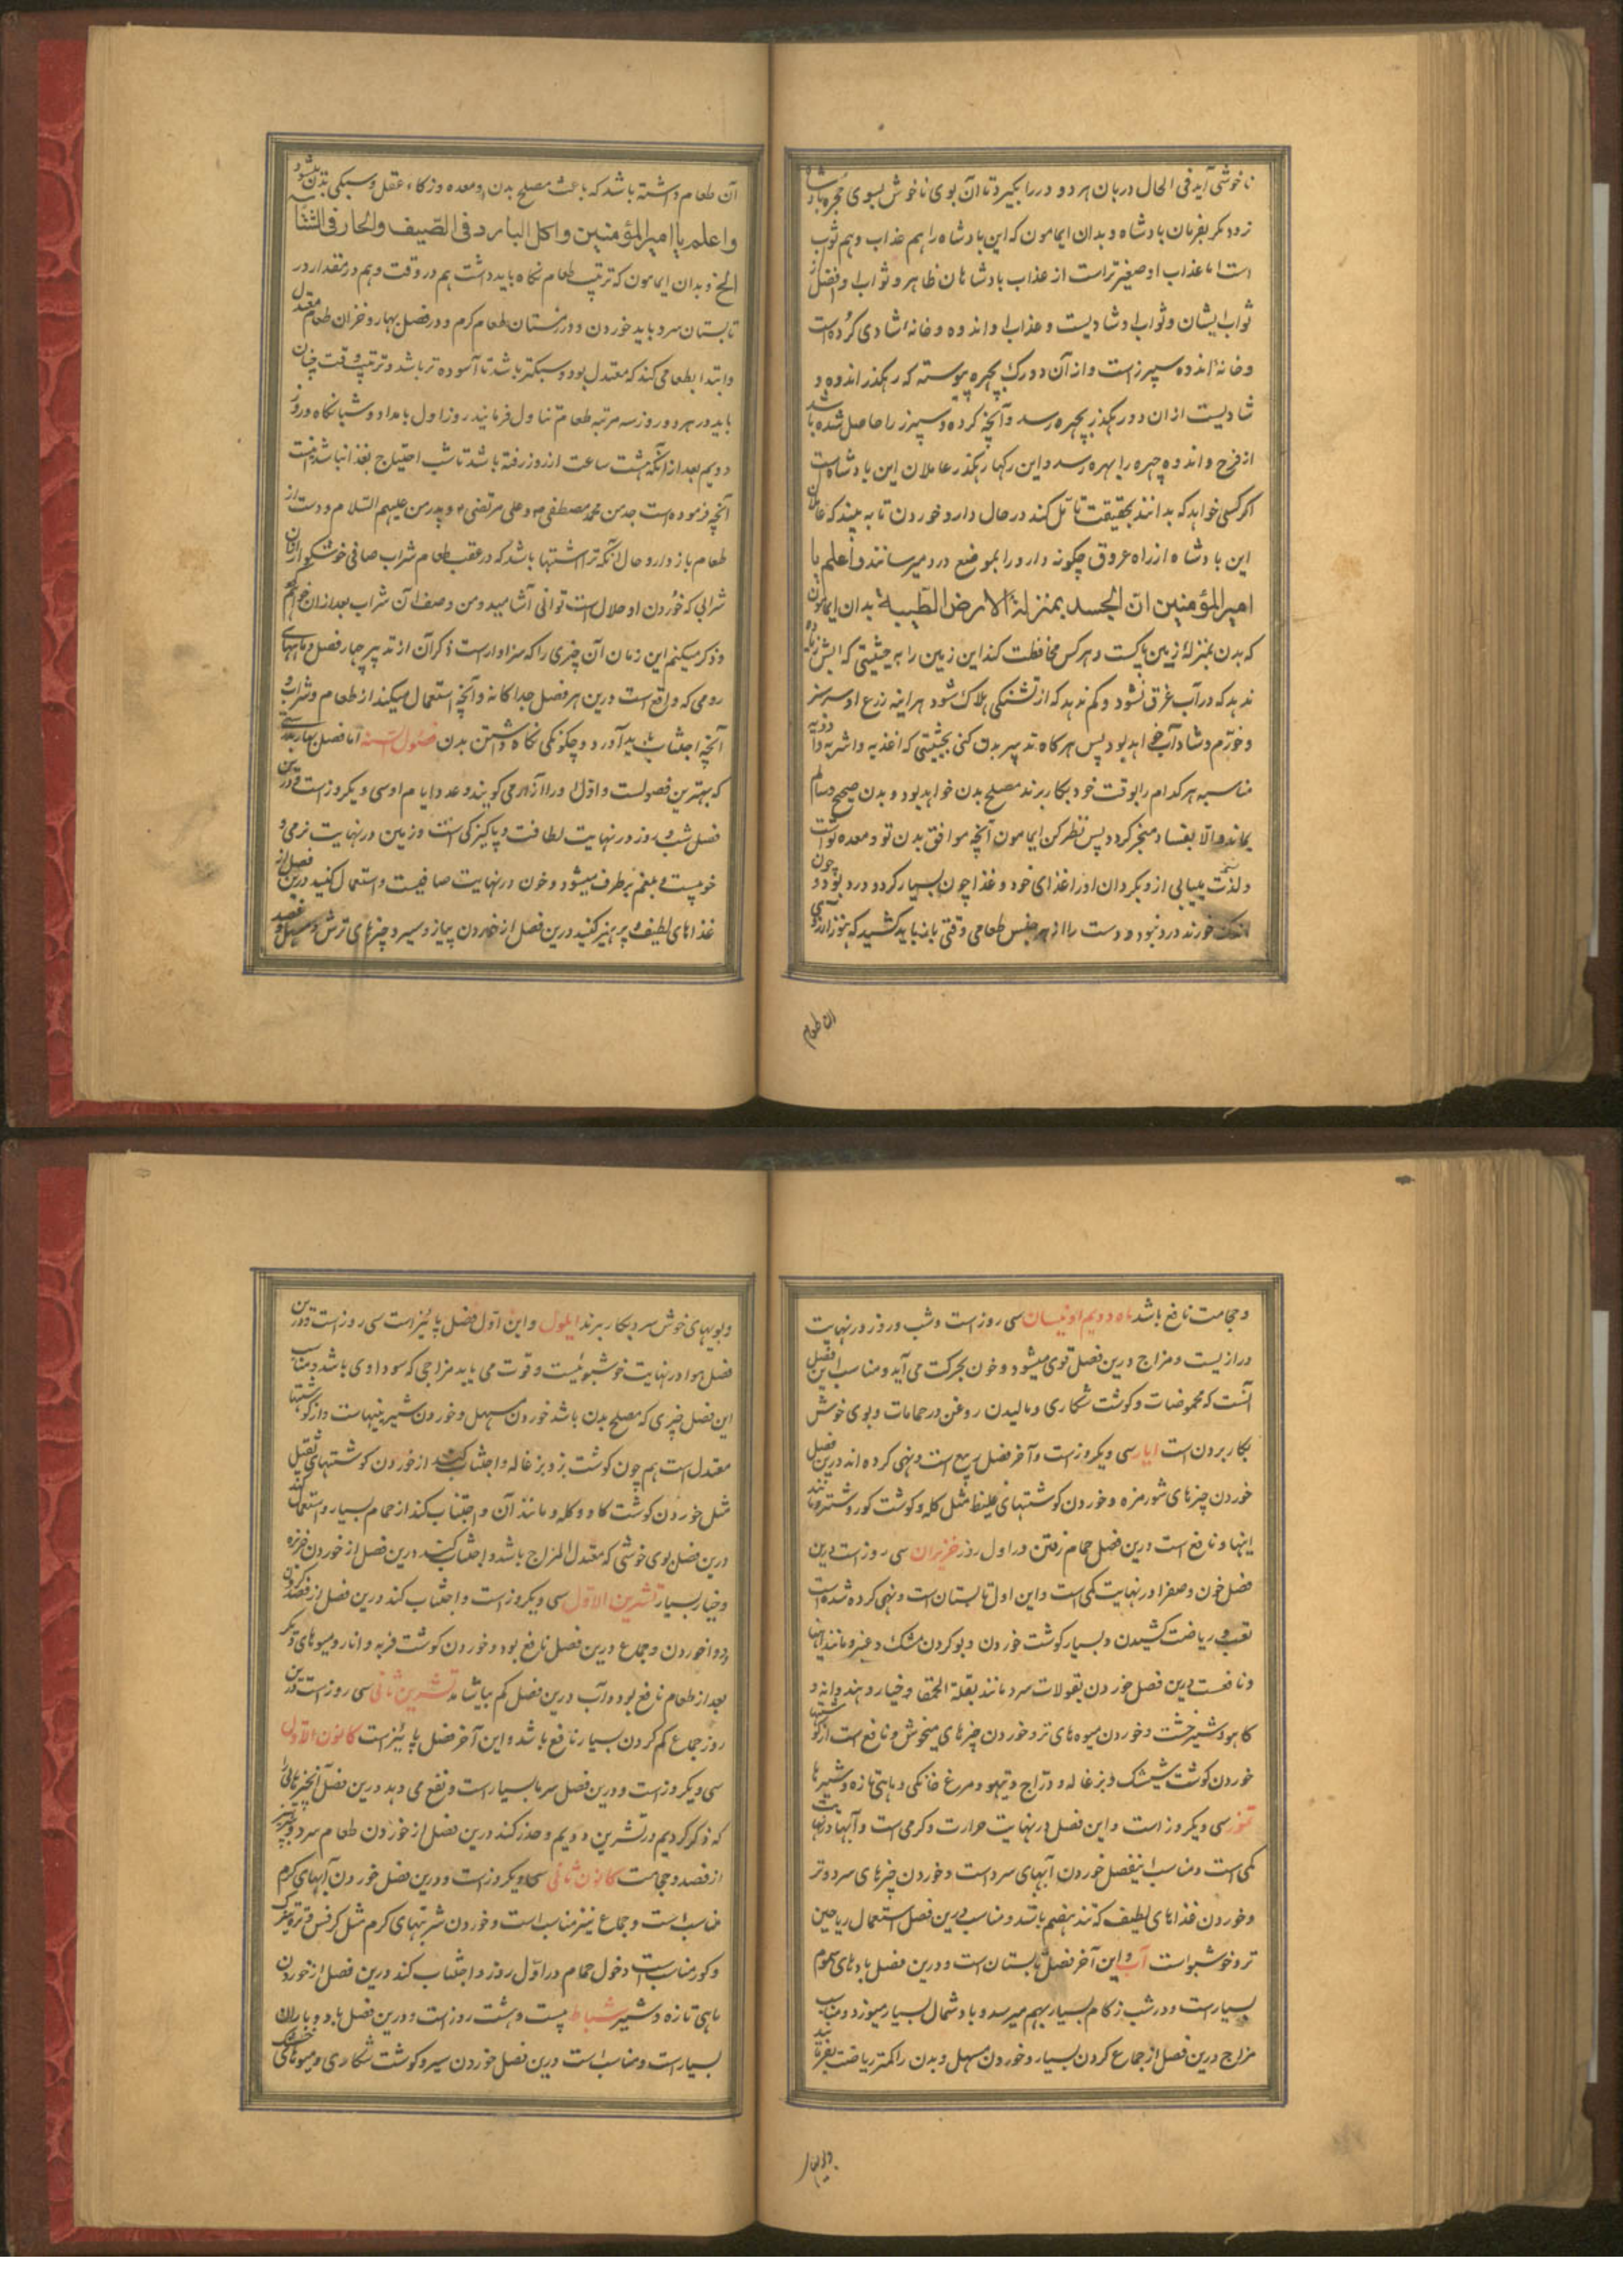 ناخوشی آید فی الحال دربان هر دو در را بگیرد تا آن بوی ناخوش بسوی حجره پادشاه
نرود مگر بفرمان پادشاه و بدان ایمامون که این پادشاه را هم عذاب و هم ثواب
است اما عذاب او صغیرتر است از عذاب پادشاهان ظاهر و ثواب او افضل از
ثواب ایشان و ثواب او شادیست و عذاب او اندوه و خانهٔ شادی کرده است
و خانهٔ اندوه سپرزست و از آن دو رک بچهره پیوسته که رهکذر اندوه و
شادیست از ان دو رهکذر بچهره رسد و آنچه کرده و سپرز را حاصل شده باشد
از فرح و اندوه چهره را بهره رسد و این رکها رهکذر عاملان این پادشاه است
اکر کسی خواهد که بداند بحقیقت تأمل کند در حال دارو خوردن تا به بیند که عاملان
این پادشاه از راه عروق چکونه دارو را بموضع درد میرسانند واعلم یا
امیر المؤمنین ان الجسد بمنزلة الارض الطیبة بدان ایمامون
که بدن بمنزلهٔ زمین پاکست و هر کس محافظت کند این زمین را به حیثیتی که آبش زیاده
ندهد که در آب غرق نشود و کم ندهد که از تشنکی هلاک شود هراینه زرع او سرسبز
و خورّم و شاداب خواهد بود پس هرکاه تدبیر بدن کنی بحیثیتی که اغذیه و اشربه و ادویه
مناسبه هر کدام را بوقت خود بکار برند مصلح بدن خواهد بود و بدن صحیح و سالم
بماند و الا بفساد منجر کردد پس نظر کن ایمامون آنچه موافق بدن تو و معده تو است
و لذت مییابی ازو بکردان او را غذای خود و غذا چون بسیار کردد درد بود و چون
اندک خورند درد نبود و دست را از هر جنس طعامی وقتی باز باید کشید که هنوز آرزوی
آن طعام
آن طعام داشته باشد که باعث مصلح بدن و معده و زکاء عقل و سبکی بدن میشود
واعلم یا امیر المؤمنین واکل البارد فی الصّیف والحار فی الشتاء
الخ و بدان ایمامون که ترتیب طعام نکاه باید داشت هم در وقت و هم در مقدار در
تابستان سرد باید خوردن و در زمستان طعام کرم و در فصل بهار و خزان طعام معتدل
و ابتدا بطعامی کند که معتدل بود و سبکتر باشد تا آسوده تر باشد و ترتیب وقت چنان
باید در هر دو روز سه مرتبه طعام تناول فرمائید روز اول بامداد و شبانکاه و روز
دویم بعد از آنکه هشت ساعت از روز رفته باشد تا شب احتیاج بغذا نباشد اینست
آنچه فرموده است جد من محمد مصطفی ص و علی مرتضی ع و پدر من علیهم السلام و دست از
طعام باز دارد و حال آنکه ترا اشتها باشد که در عقب طعام شراب صافی خوشکوار از آن
شرابی که خوردن او حلال است توانی آشامید و من وصف آن شراب بعد از ان خواهم کرد
و ذکر میکنم این زمان آن چیزی را که سزاوار است ذکر آن از تدبیر چهار فصل و ماههای
رومی که واقع است درین هر فصل جداکانه و آنچه استعمال میکنند از طعام و شراب و
آنچه اجتناب باید آورد و چکونکی نکاه داشتن بدن فصول السنه اما فصل بهار بدرستی
که بهترین فصولست و اوّل او را آزار می کویند و عدد ایام او سی و یکروز است و درین
فصل شب و روز در نهایت لطافت و پاکیزکی است و زمین در نهایت نرمی و
خوبیست و بلغم برطرف میشود و خون در نهایت صافیست و استعمال کنید درین فصل از
غذاهای لطیف و پرهیز کنید درین فصل از خوردن پیاز و سیر و چیزهای ترش و مسهل و فصد
و حجامت نافع باشد ماه دویم او نیسان سی روز است و شب و روز در نهایت
درازیست و مزاج درین فصل قوی میشود و خون بحرکت می آید و مناسب این فصل
آنست که محموضات و کوشت شکاری و مالیدن روغن در حمامات و بوی خوش
بکار بردن است ایار سی و یکروز است و آخر فصل ربیع است و نهی کرده اند درین فصل
خوردن چیزهای شورمزه و خوردن کوشتهای غلیظ مثل کله و کوشت کور و شتر و مانند
اینها و نافع است درین فصل حمام رفتن در اول روز حزیران سی روز است درین
فصل خون و صفرا در نهایت کمی است و این اول تابستان است و نهی کرده شده است
تعب و ریاضت کشیدن و بسیار کوشت خوردن و بو کردن مشک و عنبر و مانند اینها
و نافعست درین فصل خوردن بقولات سرد مانند بقلة الحمقا و خیار و هندوانه و
کاهو و شیرخشت و خوردن میوه های تر و خوردن چیزهای میخوش و نافع است از کوشتها
خوردن کوشت شیشک و بزغاله و دراج و تیهو و مرغ خانکی و ماهی تازه و شیرها
تموز سی و یکروز است و این فصل در نهایت حرارت و کرمی است و آبها در نهایت
کمی است و مناسب اینفصل خوردن آبهای سرد است و خوردن چیزهای سرد و تر
و خوردن غذاهای لطیف که تند هضم باشد و مناسب درین فصل استعمال ریاحین
تر و خوشبو است آب و این آخر فصل تابستان است و درین فصل بادهای سموم
بسیار است و در شب زکام بسیار بهم میرسد و باد شمال بسیار میوزد و مناسب
مزاج درین فصل از جماع کردن بسیار و خوردن مسهل و بدن را کمتر ریاضت بفرمایند
و بویها
و بویهای خوش سرد بکار برند ایلول و این اوّل فصل پائیز است سی روز است و درین
فصل هوا در نهایت خوشبوئیست و قوت می یابد مزاجی که سوداوی باشد و مناسب
این فصل چیزی که مصلح بدن باشد خوردن مسهل و خوردن شیرینیهاست و از کوشتها
معتدل است هم چون کوشت بز و بزغاله و اجتناب کنند از خوردن کوشتهای ثقیل
مثل خوردن کوشت کاو و کله و مانند آن و اجتناب کند از حمام بسیار و استعمال کند
درین فصل بوی خوشی که معتدل المزاج باشد و اجتناب کند درین فصل از خوردن خربزه
و خیار بسیار تشرین الاوّل سی و یکروز است و اجتناب کند درین فصل از فصد کردن
و دوا خوردن و جماع درین فصل نافع بود و خوردن کوشت فربه و انار و میوهای دیکر
بعد از طعام نافع بود و آب درین فصل کم بیاشامد تشرین ثانی سی روز است درین
روز جماع کم کردن بسیار نافع باشد و این آخر فصل پائیز است کانون الاوّل
سی و یکروز است و درین فصل سرما بسیار است و نفع می دهد درین فصل آنچیزهائی را
که ذکر کردیم در تشرین دویم و حذر کند درین فصل از خوردن طعام سرد و بپرهیزد
از فصد و حجامت کانون ثانی سی و یکروز است و درین فصل خوردن آبهای کرم
مناسب است و جماع نیز مناسب است و خوردن شربتهای کرم مثل کرفس و تره تیزک
و کور مناسب است و دخول حمام در اوّل روز و اجتناب کند درین فصل از خوردن
ماهی تازه و شیر شباط بیست و هشت روز است و درین فصل باد و باران
بسیار است و مناسب است درین فصل خوردن سیر و کوشت شکاری و میوهای خشک